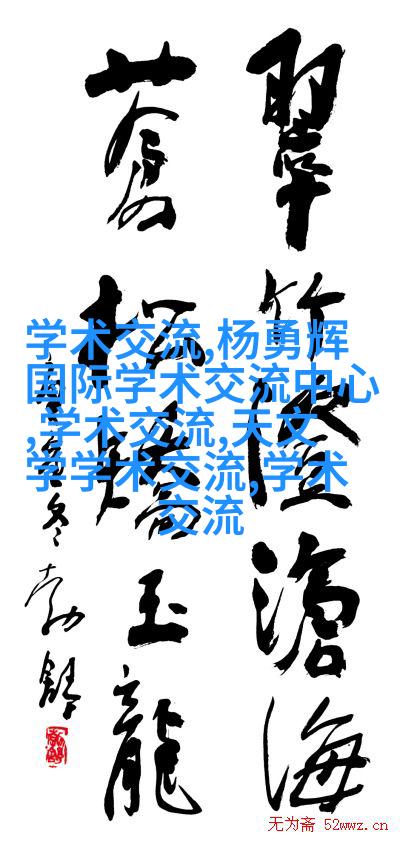 翠竹澄滄海
蒼松矯玉龍
学术交流,杨勇辉
国际学术交流中心
,学术交流,天文
学学术交流,学术
交流
无为斋 52wwz.cn